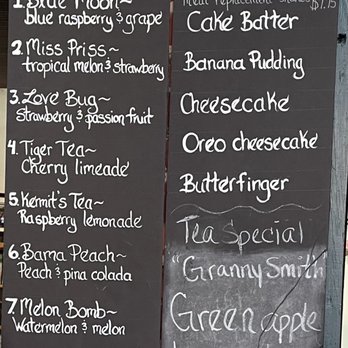 1. Blue Moon~
Blue raspberry & grape
2. Miss Priss~
tropical melon & strawberry
3. Love Bug~
Strawberry & passion fruit
4. Tiger Tea~
Cherry limeade
5. Kermit's Tea~
Raspberry lemonade
6. Bama Peach~
Peach & pina colada
7. Melon Bomb~
Watermelon & melon
Meal Replacement Shakes
$7.75
Cake Batter
Banana Pudding
Cheesecake
Oreo cheesecake
Butterfinger
Tea Special
"Granny Smith"
Green apple